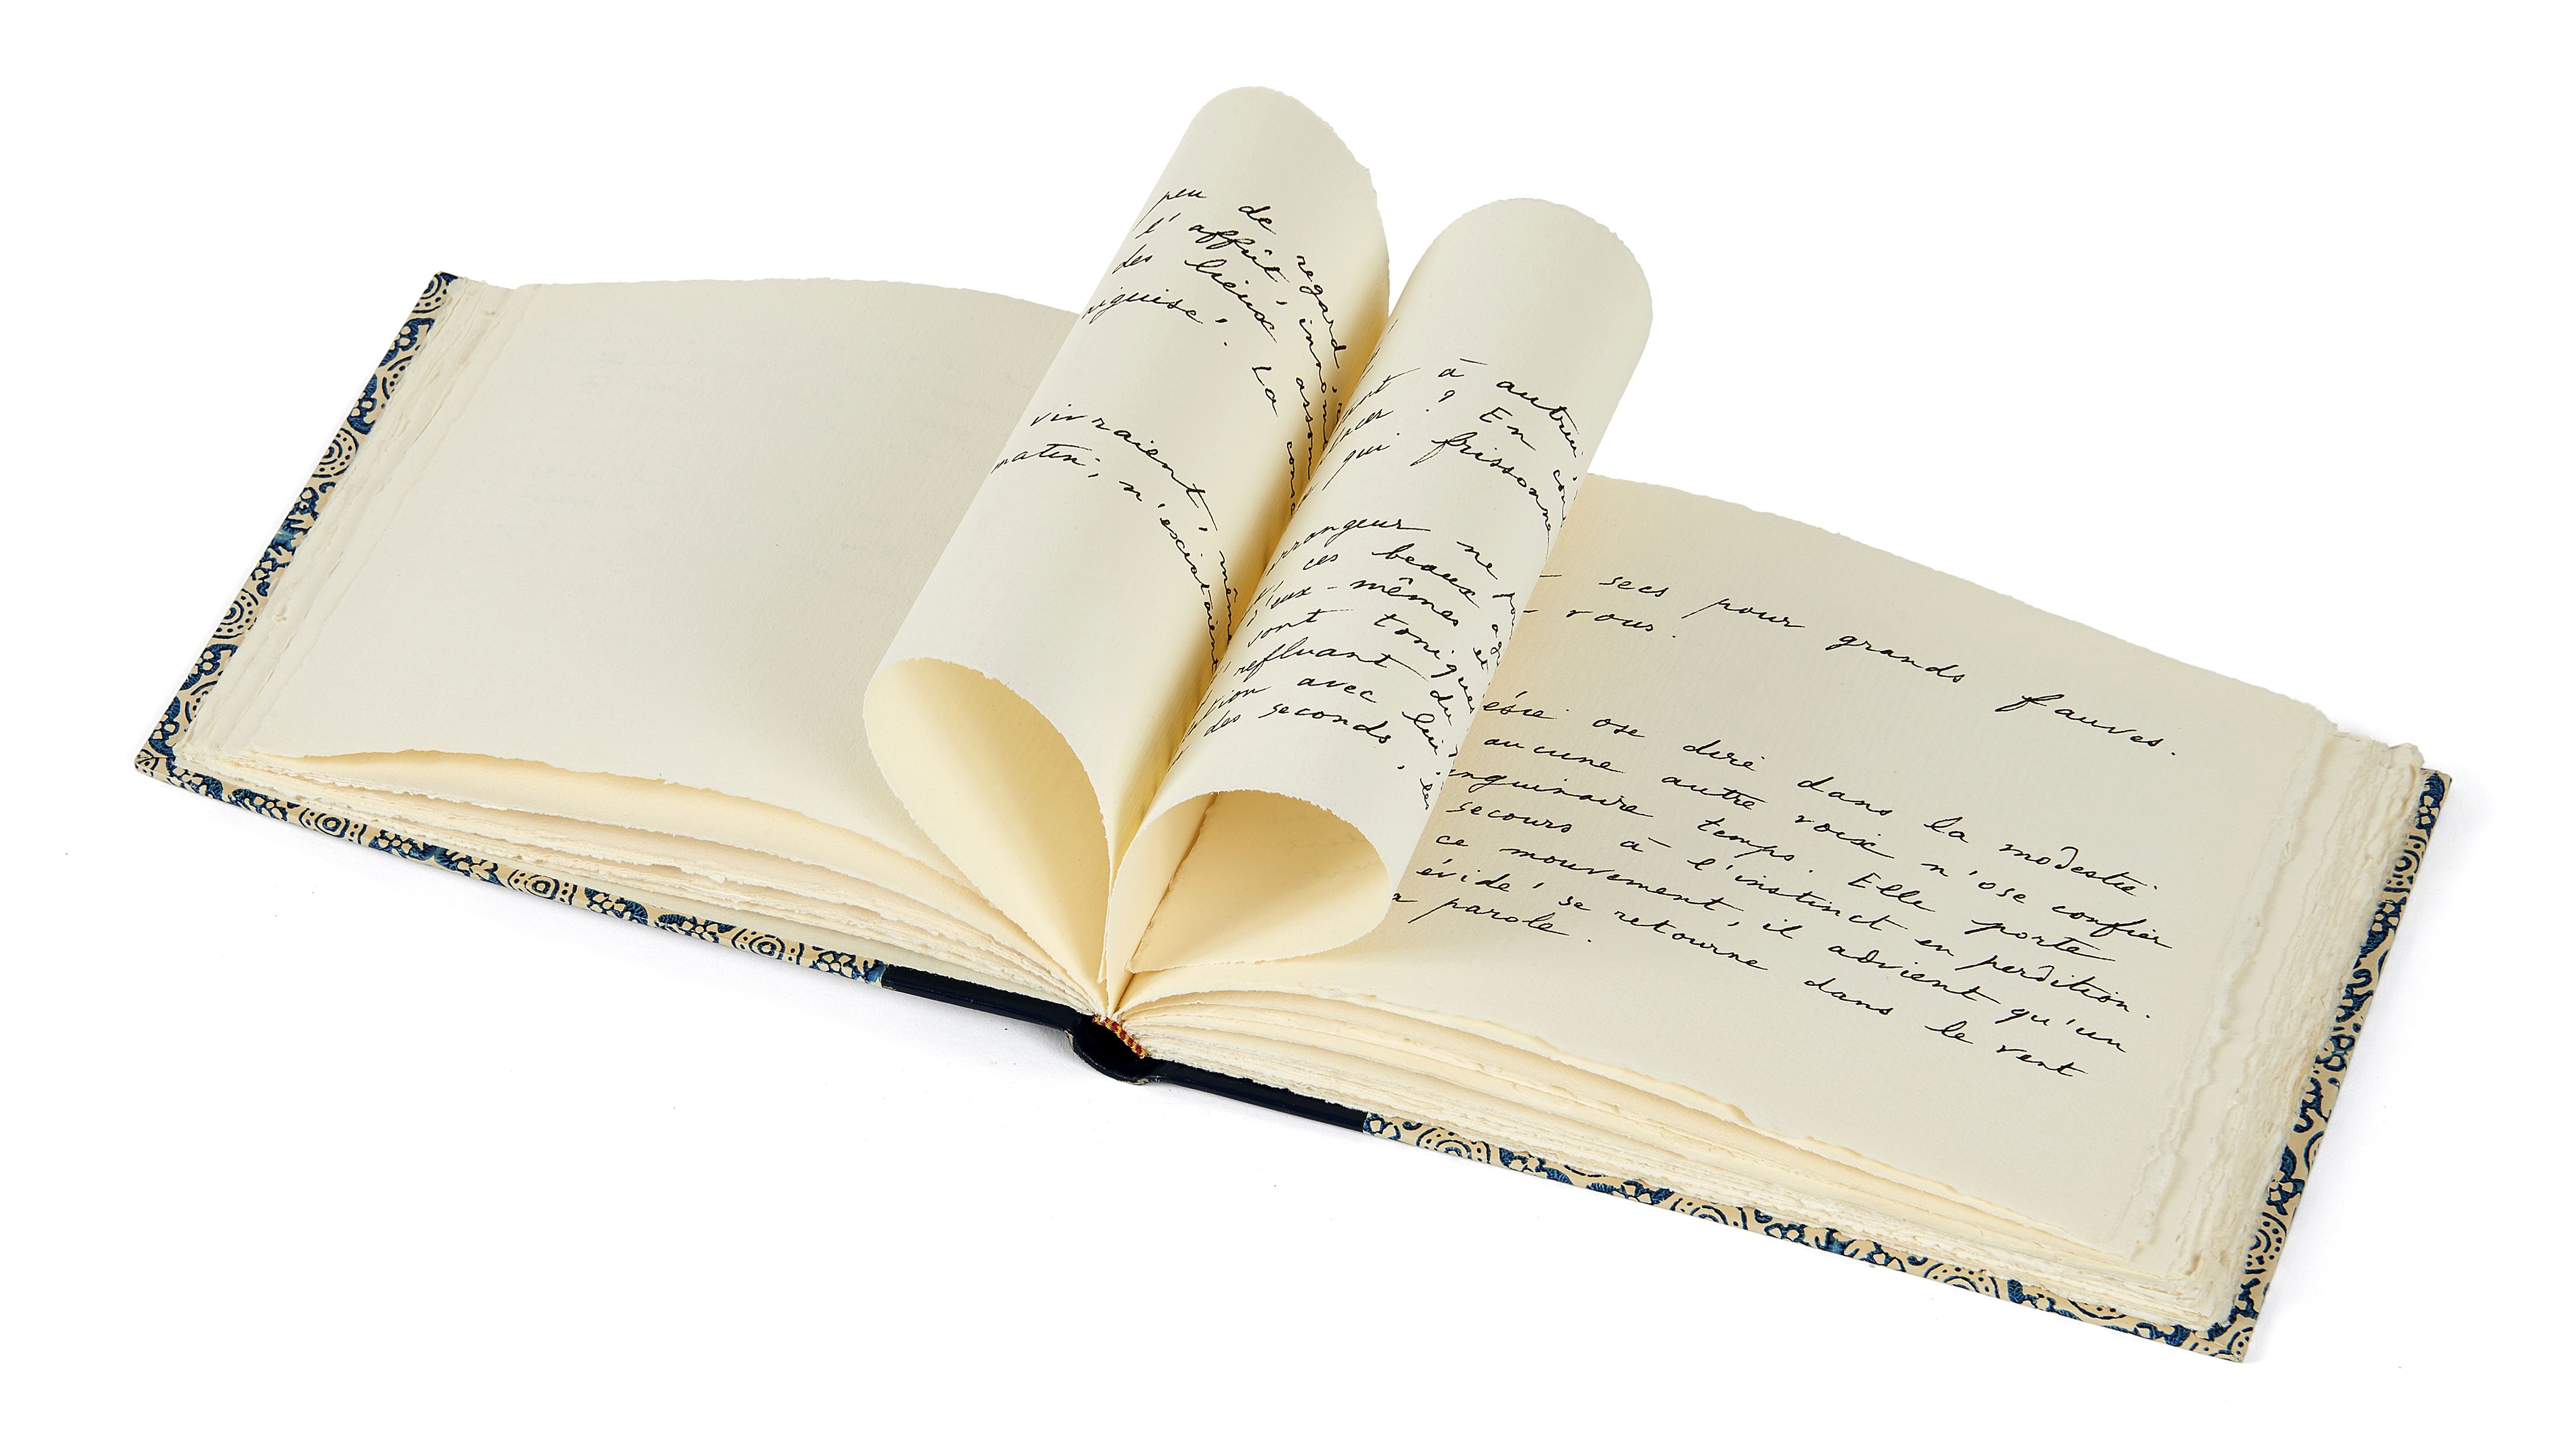 peu de regard
l'affût, innom
des lieux assom
aiguise. La cons
vivraient, même
matin, n'existaient
à autrui
? En con
qui frissonne
ne
ces beaux
eux-mêmes
sont toniques et
refluant du
avec lui
des seconds, les
secs pour grands fauves.
vous.
ose dire dans la modestie
aucune autre voix n'ose confier
temps. Elle porte
secours à l'instinct en perdition.
ce mouvement, il advient qu'un
évidé, se retourne dans le vent
parole.